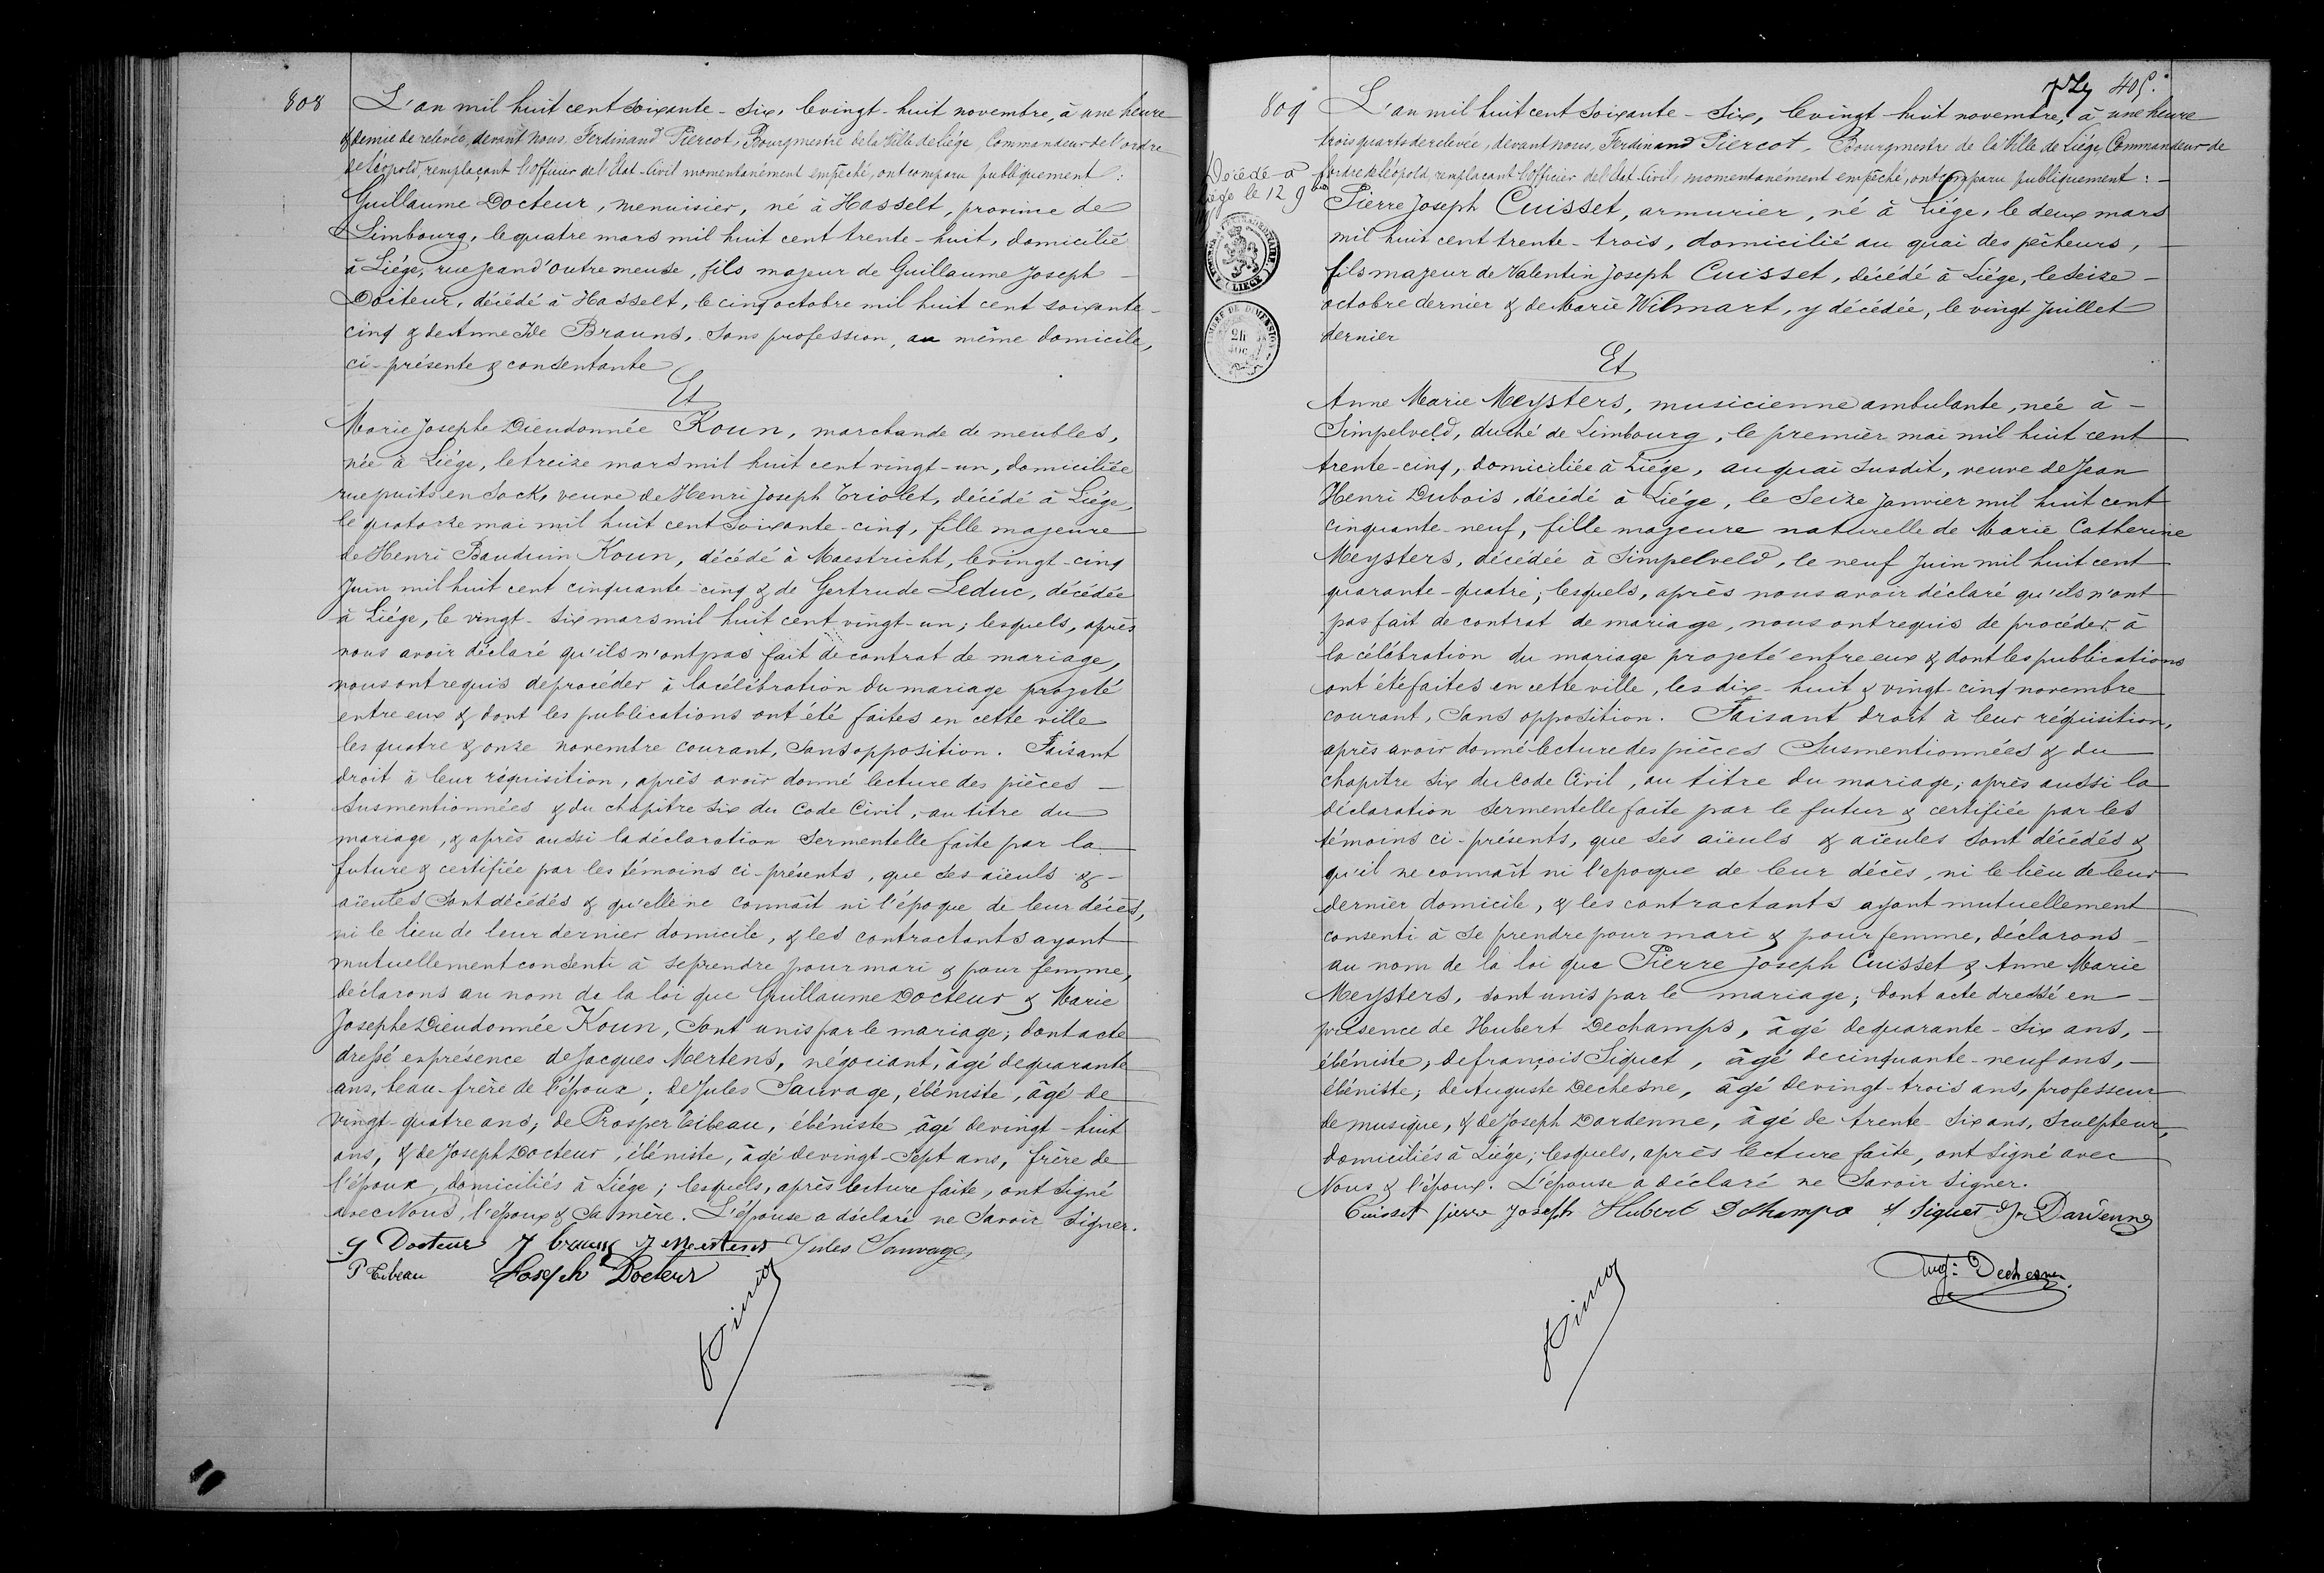 808
L'an mil huit cent soixante-six, le vingt-huit novembre, à une heure
& demie de relevée, devant Nous, Ferdinand Piercot, Bourgmestre de la Ville de Liége, Commandeur de l'ordre
de Léopold, remplaçant l'officier de l'Etat-Civil momentanément empêché, ont comparu publiquement :
Guillaume Docteur, menuisier, né à Hasselt, province de
Limbourg, le quatre mars mil huit cent trente-huit, domicilié
à Liége, rue Jean d'outremeuse, fils majeur de Guillaume Joseph
Docteur, décédé à Hasselt, le cinq octobre mil huit cent soixante-
cinq & de Anne Ide Brauns, sans profession, au même domicile,
ci-présente & consentante
Et
Marie Josephe Dieudonnée Koun, marchande de meubles,
née à Liége, le treize mars mil huit cent vingt-un, domiciliée
rue puits en Sock, veuve de Henri Joseph Triolet, décédé à Liége,
le quatorze mai mil huit cent soixante-cinq, fille majeure
de Henri Bauduin Koun, décédé à Maestricht, le vingt-cinq
Juin mil huit cent cinquante-cinq & de Gertrude Leduc, décédée
à Liége, le vingt-six mars mil huit cent vingt-un; lesquels, après
nous avoir déclaré qu'ils n'ont pas fait de contrat de mariage,
nous ont requis de procéder à la célébration du mariage projeté
entre eux & dont les publications ont été faites en cette ville
les quatre & onze novembre courant, sans opposition. Faisant
droit à leur réquisition, après avoir donné lecture des pièces
susmentionnées & du chapitre six du Code Civil, au titre du
mariage, & après aussi la déclaration sermentelle faite par la
future & certifiée par les témoins ci-présents, que ses aïeuls &
aïeules sont décédés & qu'elle ne connaît ni l'époque de leur décès,
ni le lieu de leur dernier domicile, & les contractants ayant
mutuellement consenti à se prendre pour mari & pour femme,
déclarons au nom de la loi que Guillaume Docteur & Marie
Josephe Dieudonnée Koun, sont unis par le mariage; dont acte
dressé en présence de Jacques Mertens, négociant, âgé de quarante
ans, beau-frère de l'époux; de Jules Sauvage, ébéniste, âgé de
vingt-quatre ans; de Prosper Tibeau, ébéniste âgé de vingt-huit
ans, & de Joseph Docteur, ébéniste, âgé de vingt-sept ans, frère de
l'époux, domiciliés à Liége; lesquels, après lecture faite, ont signé
avec Nous, l'époux & sa mère. L'épouse a déclaré ne savoir signer.
G Docteur J brauns J Mertens Jules Sauvage
P Tibeau Joseph Docteur
405.
809
L'an mil huit cent soixante-six, le vingt-huit novembre, à une heure
trois quarts de relevée, devant nous, Ferdinand Piercot, Bourgmestre de la Ville de Liége, Commandeur de
l'ordre de Léopold, remplaçant l'officier de l'Etat-Civil, momentanément empêché, ont comparu publiquement :
Décédé à
Liège le 12 9bre
Pierre Joseph Cuisset, armurier, né à Liége, le deux mars
mil huit cent trente-trois, domicilié au quai des pêcheurs,
fils majeur de Valentin Joseph Cuisset, décédé à Liége, le seize
octobre dernier & de Marie Wilmart, y décédée, le vingt Juillet
dernier
LIEGE
TIMBRE DE DIMENSION
Et
Anne Marie Meysters, musicienne ambulante, née à
Simpelveld, duché de Limbourg, le premier mai mil huit cent
trente-cinq, domiciliée à Liége, au quai susdit, veuve de Jean
Henri Dubois, décédé à Liége, le seize Janvier mil huit cent
cinquante-neuf, fille majeure naturelle de Marie Catherine
Meysters, décédée à Simpelveld, le neuf Juin mil huit cent
quarante-quatre; lesquels, après nous avoir déclaré qu'ils n'ont
pas fait de contrat de mariage, nous ont requis de procéder à
la célébration du mariage projeté entre eux & dont les publications
ont été faites en cette ville, les dix-huit & vingt-cinq novembre
courant, sans opposition. Faisant droit à leur réquisition,
après avoir donné lecture des pièces susmentionnées & du
chapitre six du Code Civil, au titre du mariage; après aussi la
déclaration sermentelle faite par le futur & certifiée par les
témoins ci-présents, que ses aïeuls & aïeules sont décédés &
qu'il ne connaît ni l'époque de leur décès, ni le lieu de leur
dernier domicile, & les contractants ayant mutuellement
consenti à se prendre pour mari & pour femme, déclarons
au nom de la loi que Pierre Joseph Cuisset & Anne Marie
Meysters, sont unis par le mariage; dont acte dressé en
présence de Hubert Dechamps, âgé de quarante-six ans,
ébéniste; de françois Siquet, âgé de cinquante-neuf ans,
ébéniste; de Auguste Dechesne, âgé de vingt-trois ans, professeur
de musique, & de Joseph Dardenne, âgé de trente-six ans, sculpteur,
domiciliés à Liége; lesquels, après lecture faite, ont signé avec
Nous & l'époux. L'épouse a déclaré ne savoir signer.
Cuisset pierre Joseph Hubert Dechamps f Siquet Jh Dardenne
Aug: Dechesne